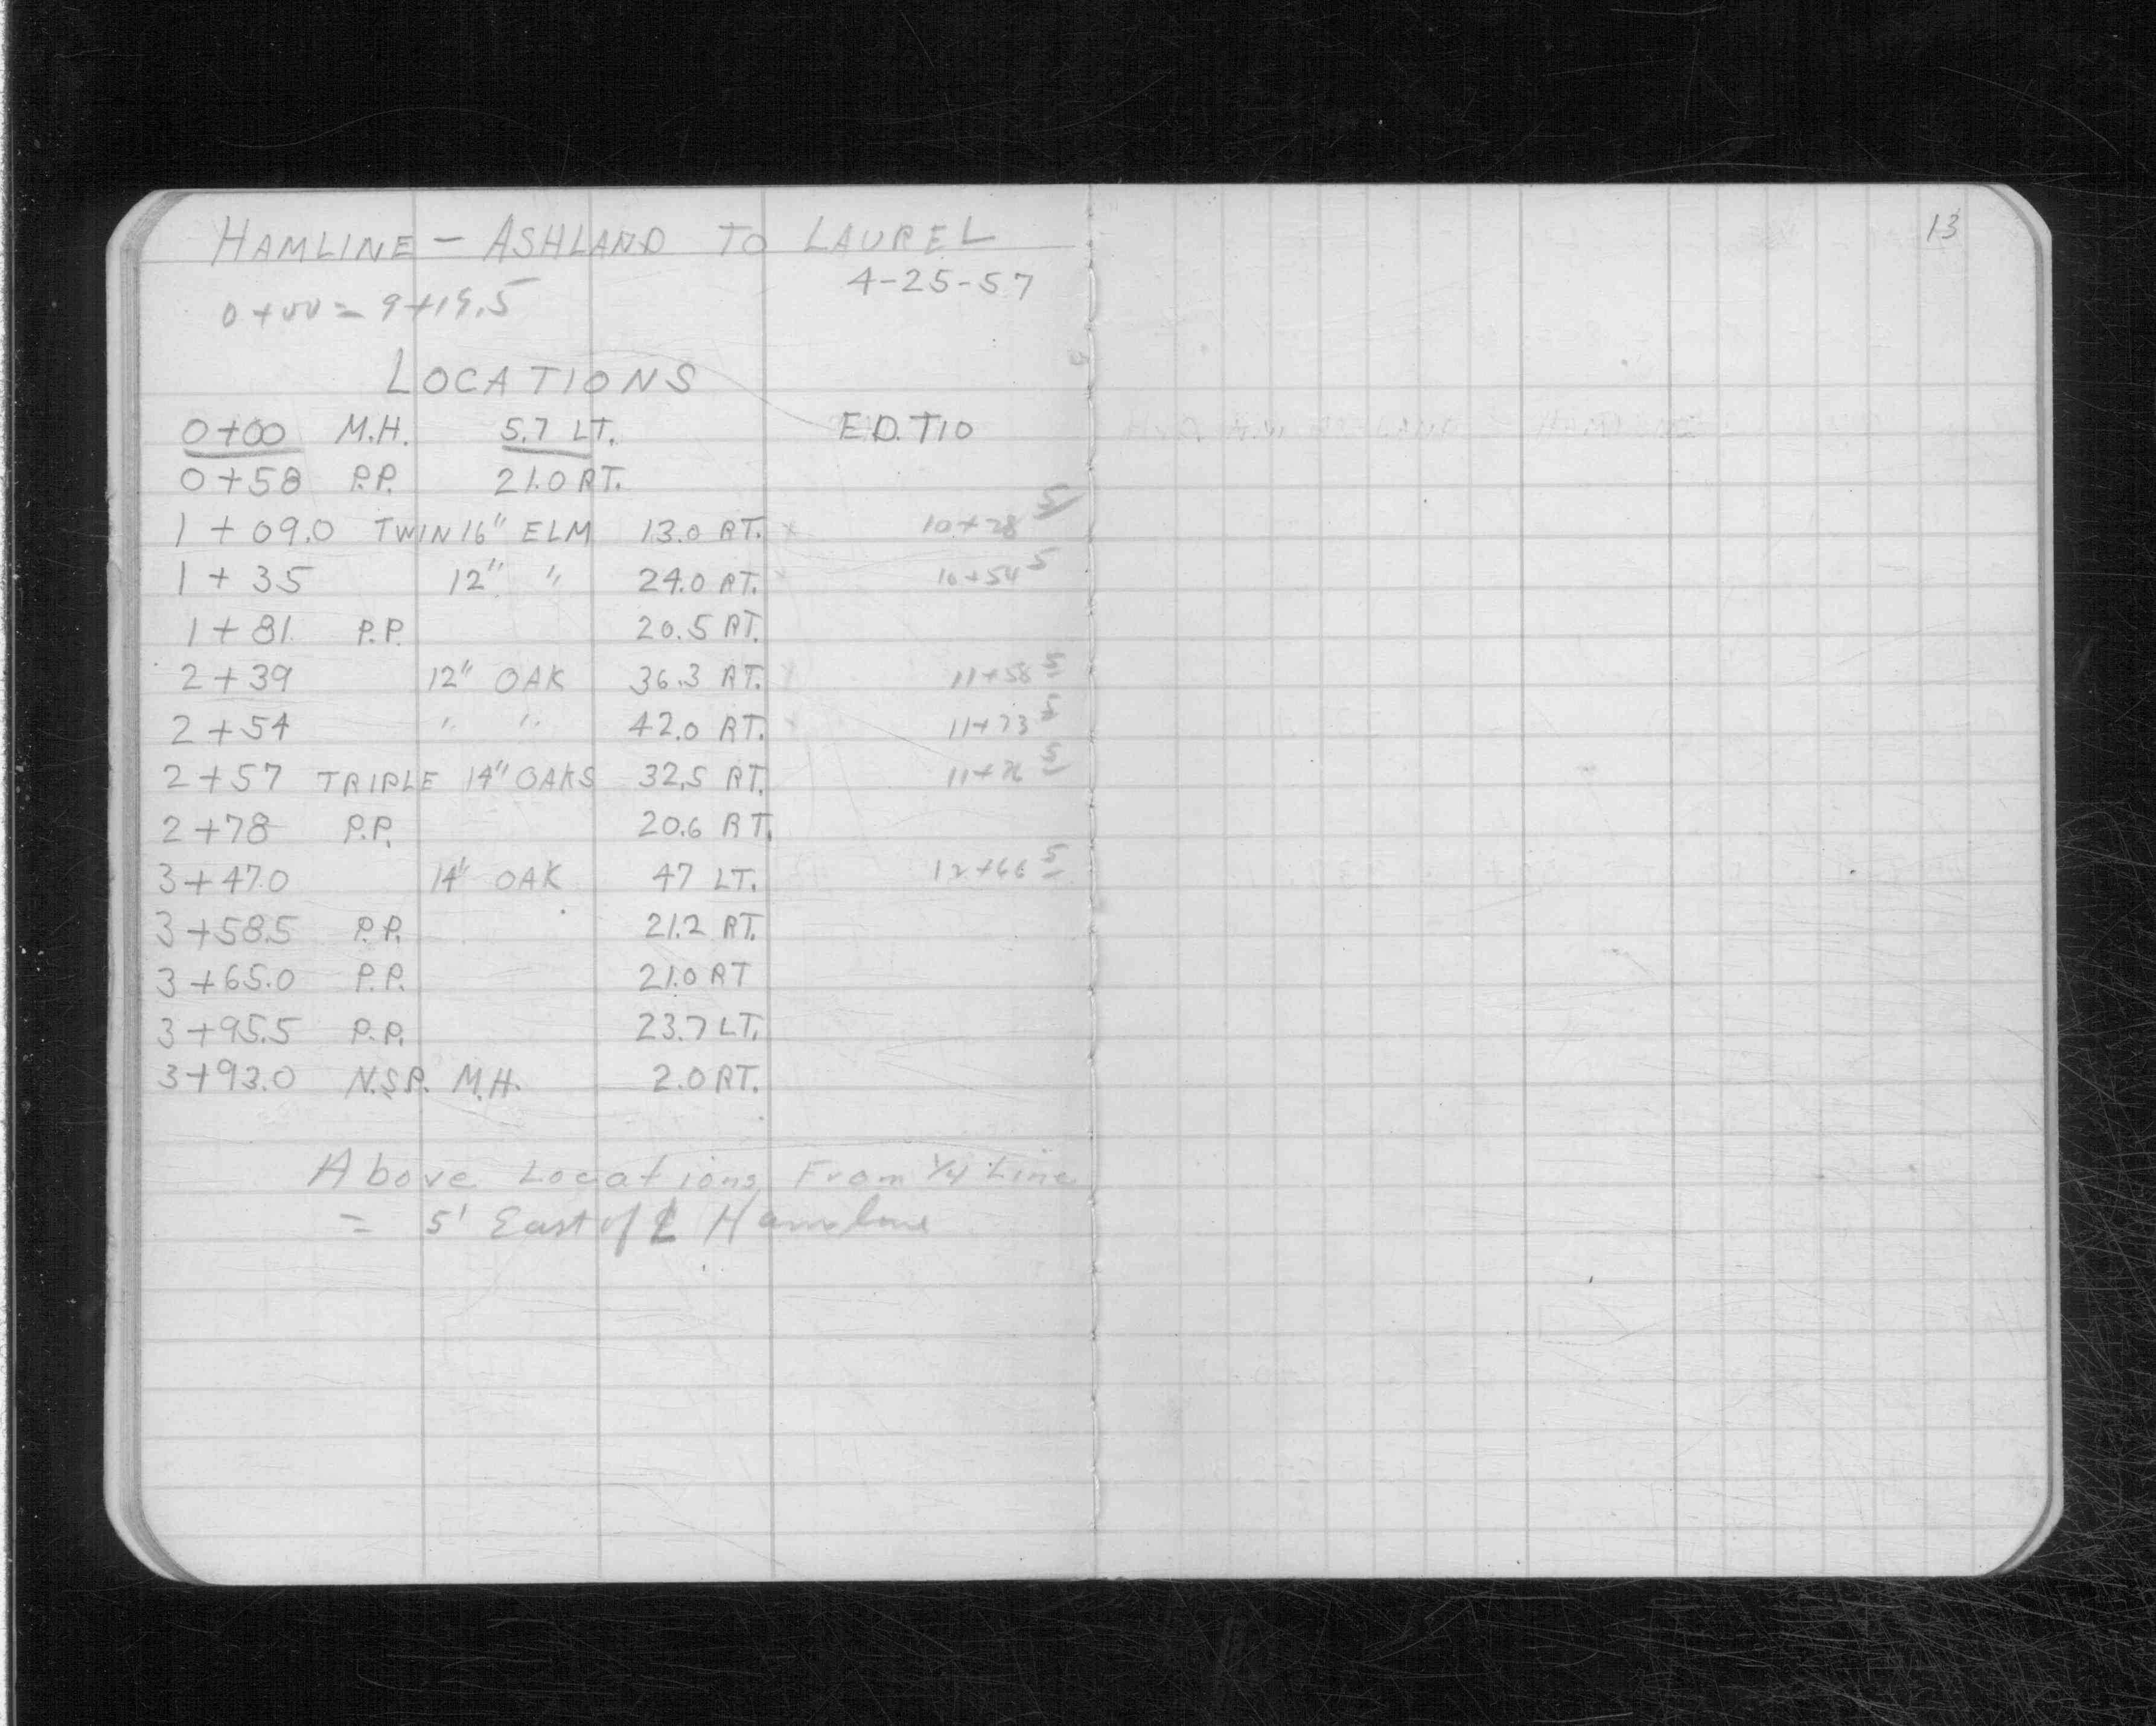 HAMLINE – ASHLAND TO LAUREL
4-25-57
0+00 = 9+19.5
LOCATIONS
0+00 M.H. 5.7 LT. E.D.T10
0+58 P.P. 21.0 RT.
1+09.0 TWIN 16" ELM 13.0 RT. 10+28 5
1+35 12" " 24.0 RT. 10+54 5
1+81 P.P. 20.5 RT.
2+39 12" OAK 36.3 RT. 11+58 5
2+54 " " 42.0 RT. 11+73 5
2+57 TRIPLE 14" OAKS 32.5 RT. 11+76 5
2+78 P.P. 20.6 RT.
3+47.0 14" OAK 47 LT. 12+66 5
3+58.5 P.P. 21.2 RT.
3+65.0 P.P. 21.0 RT
3+95.5 P.P. 23.7 LT.
3+93.0 N.S.P. M.H. 2.0 RT.
Above Locations From 1/4 Line
= 5' East of ℄ Hamline
13